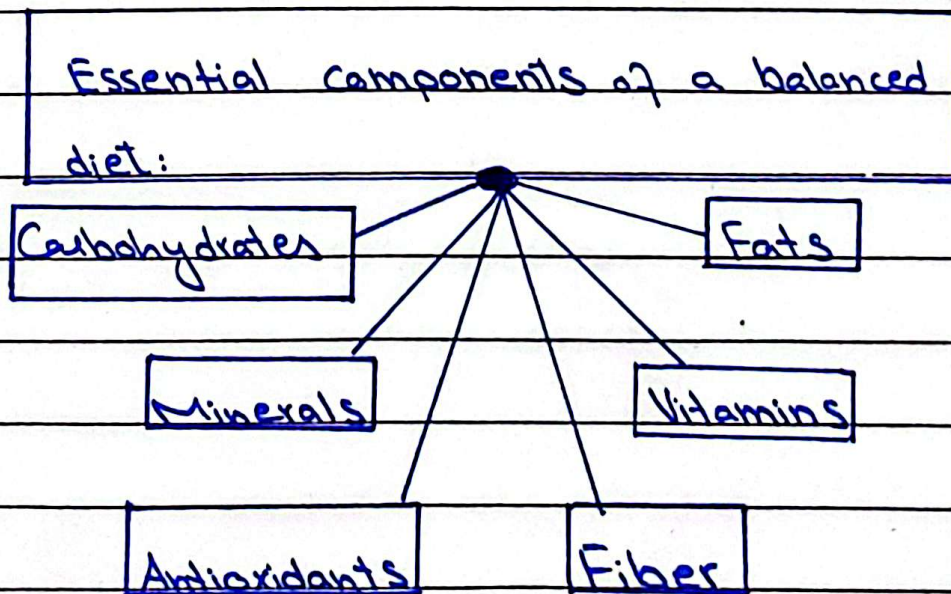 Essential components of a balanced
diet:
Carbohydrates
Fats
Minerals
Vitamins
Antioxidants
Fiber